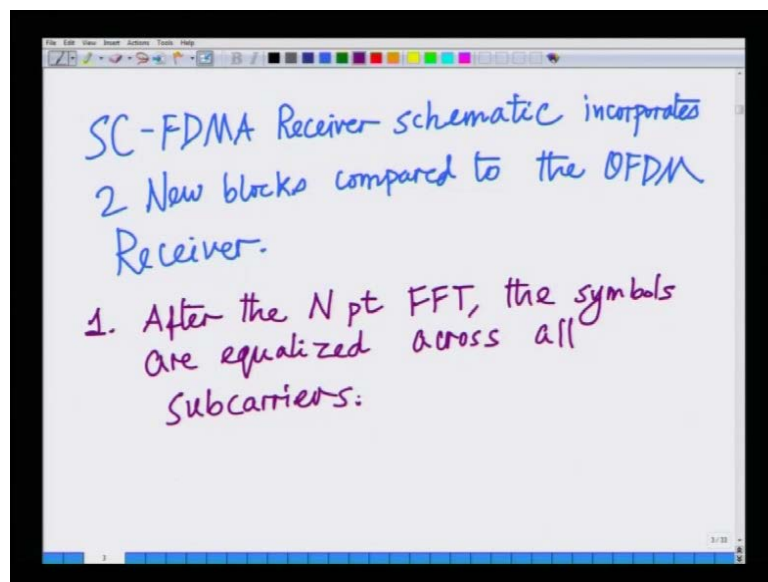 File Edit View Insert Actions Tools Help
SC-FDMA Receiver schematic incorporates
2 New blocks compared to the OFDM
Receiver.
1. After the N pt FFT, the symbols
are equalized across all
subcarriers.
3/33
3